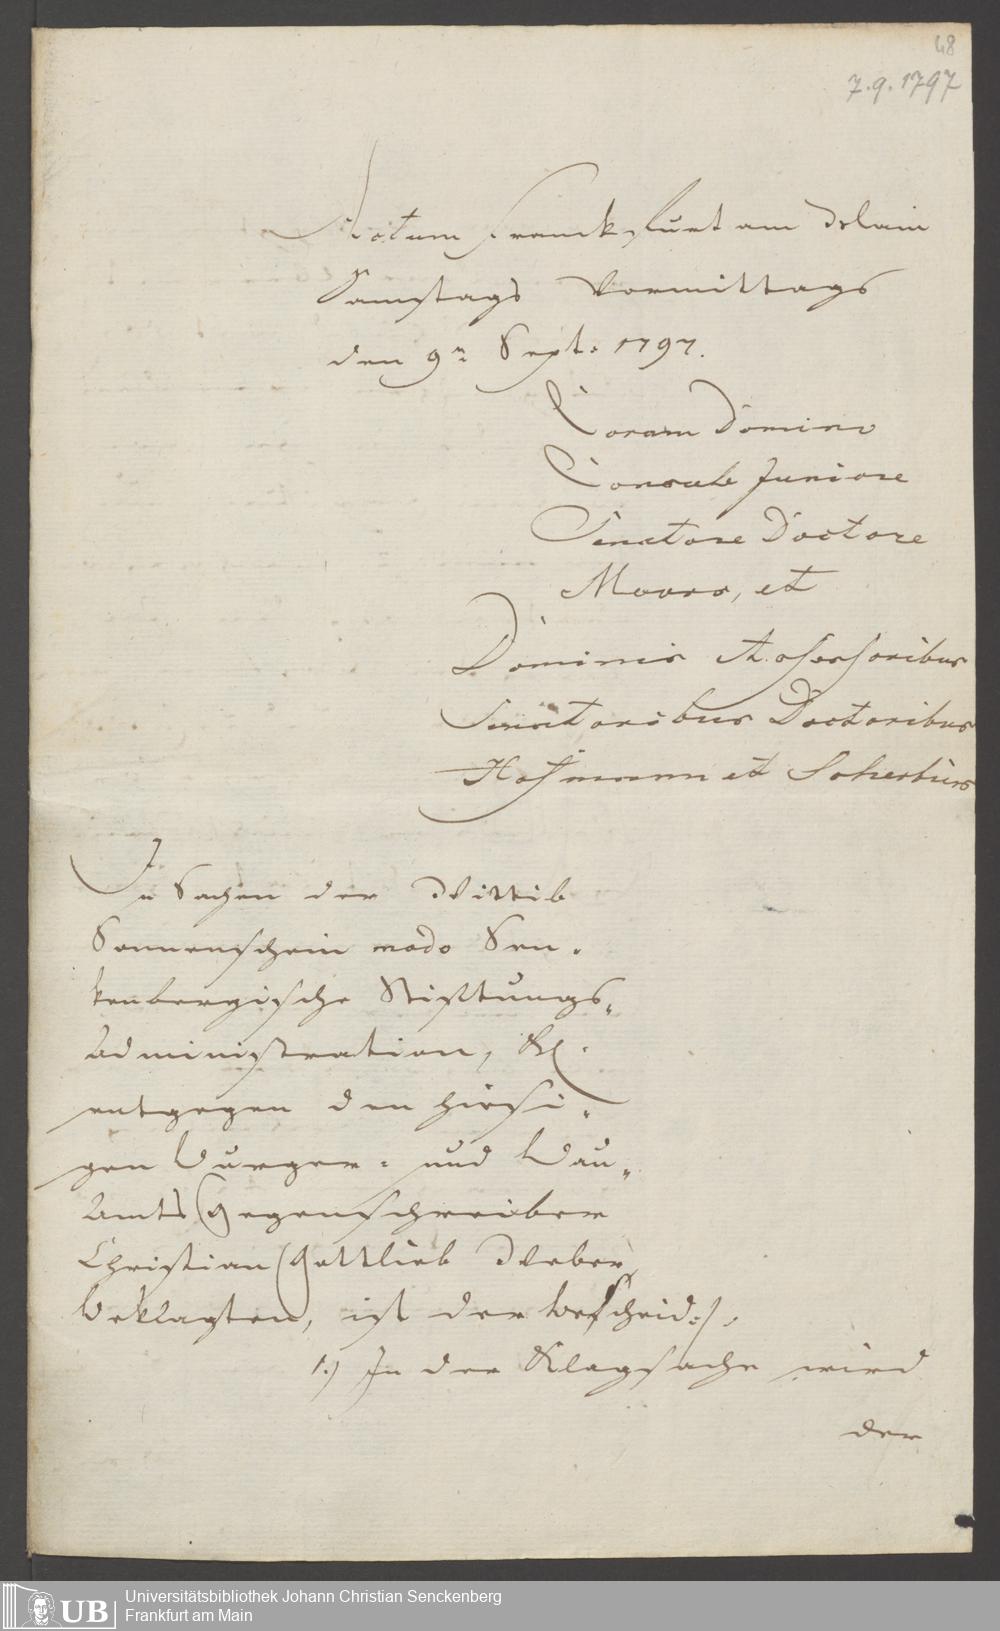 48
7.9.1797
Actum Franckfurt am Main
Samstags Vormittags
den 9n Sept: 1797.
Coram Domino
Consule Juniore
Senatore Doctore
Moors, et
Dominis Assessoribus
Senatoribus Doctoribus
Hofmann et Scherbius
In Sachen der Wittib
Sonnenschein modo Sen-
kenbergische Stiftungs-
administration, Kl.
entgegen den hiesi-
gen Burger- und Bau-
Amts Gegenschreiber
Christian Gottlieb Weber
Beklagten, ist der Bescheid:/.
1.) In der Klagsache wird
der
UB
Universitätsbibliothek Johann Christian Senckenberg
Frankfurt am Main